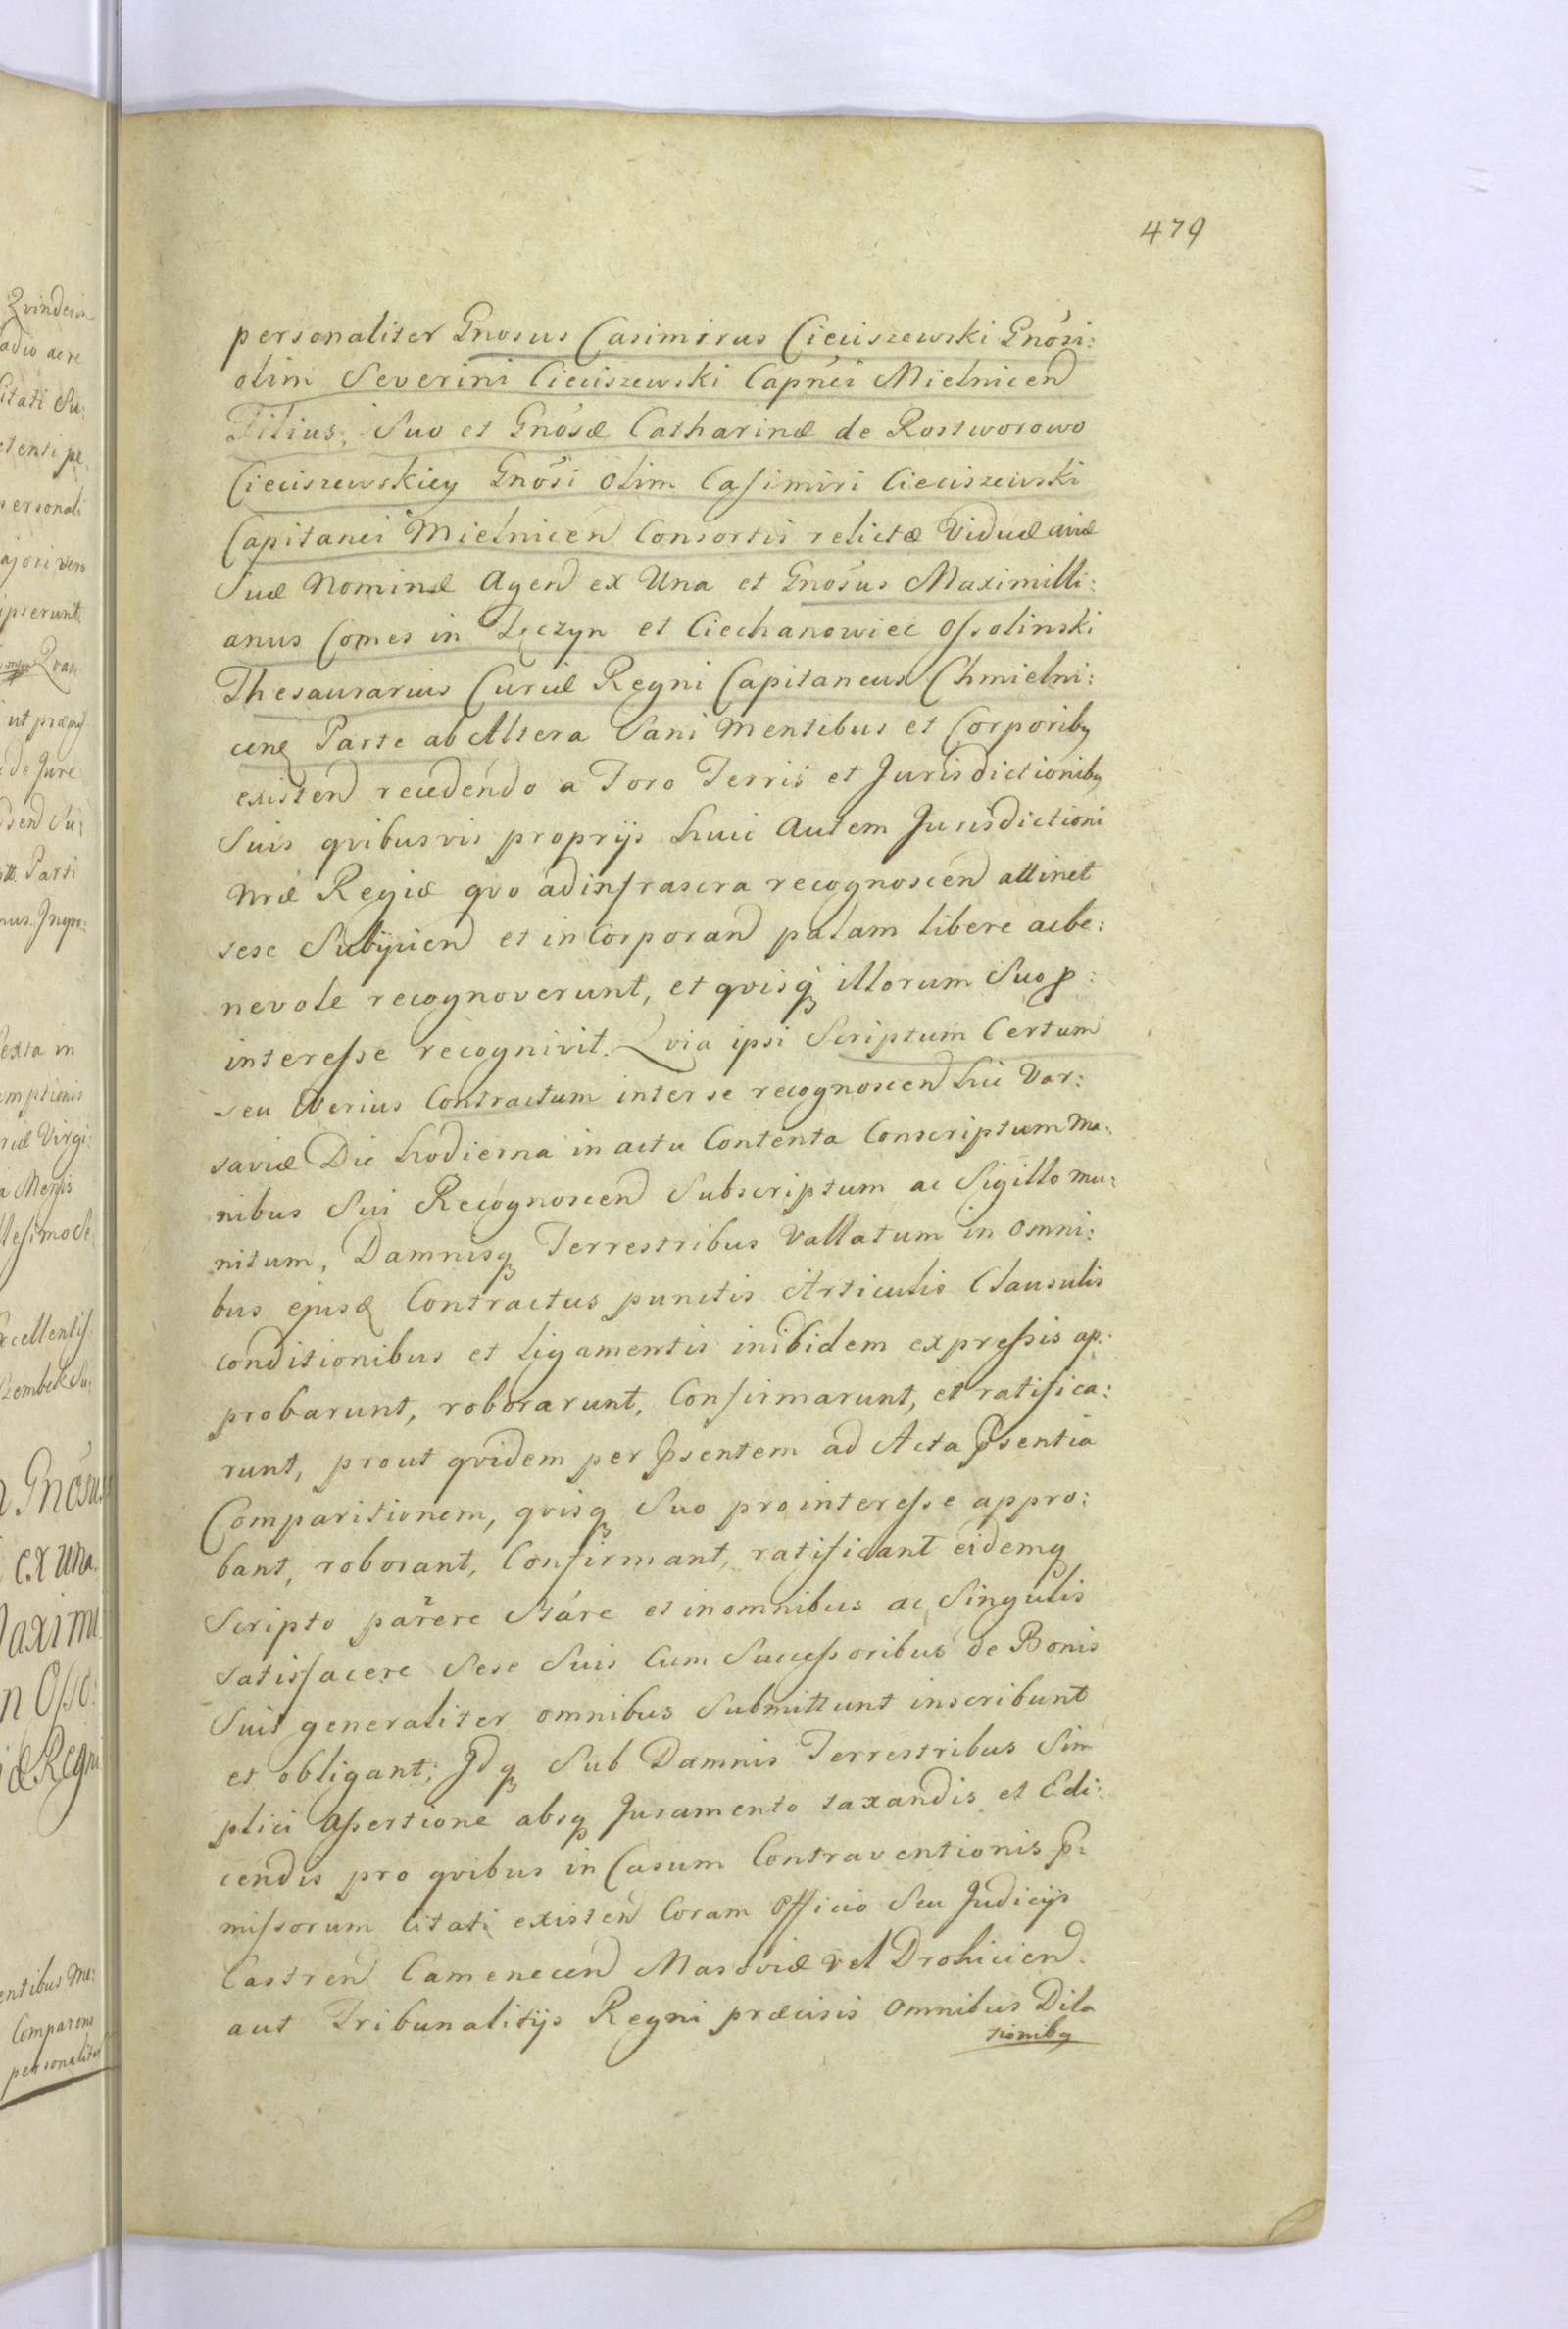 479
personaliter Gnosus Casimirus Cieciszewski Gnosi:
olim Severini Cieciszewski Capnei Mielnicen
Filius, Suo et Gnosæ Catharinæ de Rostworowo
Cieciszewskiey Gnosi olim Casimiri Cieciszewski
Capitanei Mielnicen Consortis relictæ Viduæ aviæ
Suæ Nominæ Agen ex Una et Gnosus Maximilli:
anus Comes in Tęczyn et Ciechanowiec Ossolinski
Thesaurarius Curiæ Regni Capitaneus Chmielni:
cenę Parte ab Altera Sani Mentibus et Corporibq
existen recedendo a Foro Terris et Jurisdictionibq
Suis qvibusvis proprijs huic Autem Jurisdictioni
Nræ Regiæ qvo ad infrascra recognoscen attinet
sese Subijcien et incorporan palam libere ac be:
nevole recognoverunt, et qvisq illorum Suo p:
interesse recognivit. Qvia ipsi Scriptum Certum
seu Verius Contractum inter se recognoscen hic Var:
saviæ Die hodierna in actu Contenta Conscriptum Ma:
nibus Sui Recognoscen Subscriptum ac Sigillo mu:
nitum, Damnisq Terrestribus Vallatum in omni:
bus ejusđ Contractus punctis Articulis Clausulis
conditionibus et ligamentis inibidem expressis ap:
probarunt, roborarunt, Confirmarunt, et ratifica:
runt, prout qvidem per psentem ad Acta psentia
Comparitionem, qvisq Suo pro interesse appro:
bant, roborant, Confirmant, ratificant eidemq
Scripto parere Stare et in omnibus ac Singulis
satisfacere Sese Suis Cum Successoribus de Bonis
Suis generaliter omnibus Submittunt inscribunt
et obligant; Jdq Sub Damnis Terrestribus Sim
plici Assertione absq Juramento taxandis et Edi:
cendis pro qvibus in Casum Contraventionis p:
missorum Citati existen Coram Officio Seu Judicijs
Castren Camenecen Masoviæ vel Drohicien
aut Tribunalitijs Regni præcisis omnibus Dila
tionibq